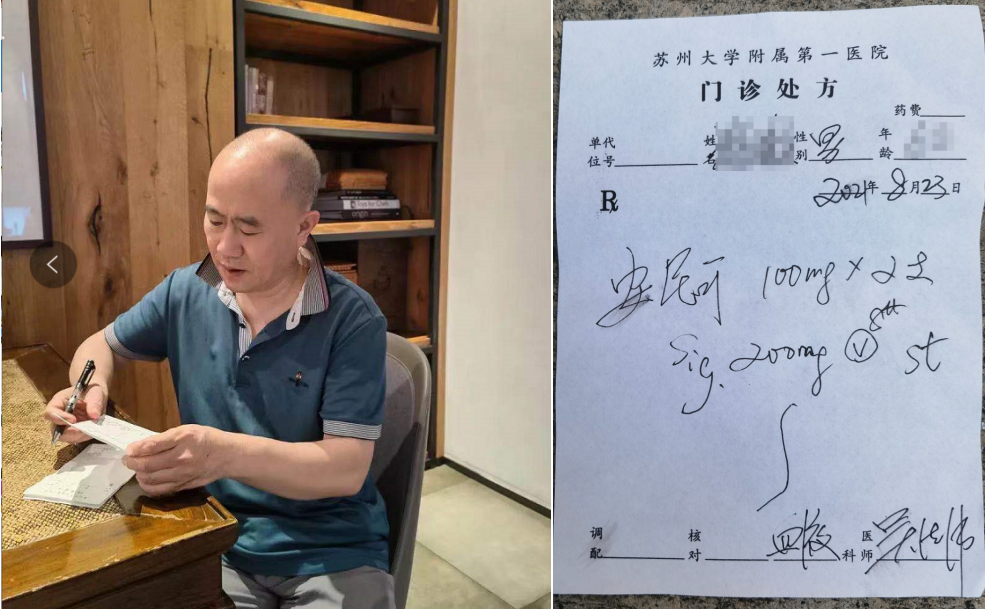 origin
苏州大学附属第一医院
门诊处方
药费
单位代号 姓名 性别 男 年龄
2021年8月23日
R
安尼可 100mg × 2支
Sig. 200mg Ⓥ gtt st
调配 核对 血液科 医师